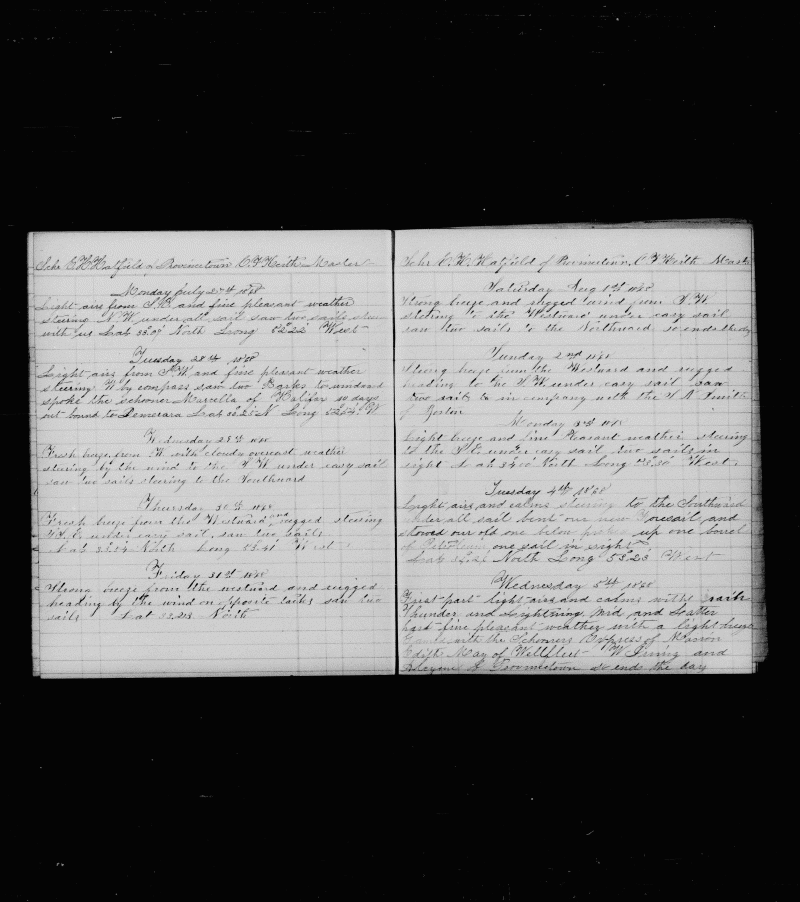 Schr C H Hatfield of Provincetown C F Keith Master
Monday July 27th 1868
Light airs from S E and fine pleasant weather
stering N W under all sail saw two sails
with us Lat 33.09 North Long 52.22 West
Tuesday 28th 1868
Light airs from S W and fine pleasant weather
steering W by compass saw two Barks to windward
spoke the schooner Marcella of Halifax 10 days
out bound to Demerara Lat N Long W
Wednesday 29th 1868
Fresh breze from W with cloudy overcast weather
steering by the wind to the S W under easy sail
saw two sails steering to the Southward
Thursday 30th 1868
Fresh breze from the Westward and rugged steering
under easy sail, saw two sails
Lat 33.34 North Long 53.41 West
Friday 31st 1868
Strong breeze from the westward and rugged
heading by the wind on opposite tacks saw two
sails Lat North
Schr C. H. Hatfield of Provincetown, C F Keith Master
Saturday Aug 1st 1868
Strong breze and rugged wind from S W.
stering to the Westward under easy sail
saw two sails to the Northward so ends the day
Sunday 2nd 1868
Strong breze from the Westward and rugged
heading to the S W under easy sail Saw
two sails in company with the Smith
of Boston
Monday 3rd 1868
Light breeze and fine Pleasant weather steering
to the under easy sail two sails in
sight Lat North Long West.
Tuesday 4th 1868
Light airs and calms steering to the Southward
under all sail bent our new Foresail and
stowed our old one below up one barrel
of one sail in sight
Lat North Long 53.23 West
Wednesday 5th 1868
First part light airs and calms with rain
Thunder and Lightning, Mid and Latter
part fine pleasant weather with a light breeze
with the Schooners Express of Marion
Edith May of Wellfleet W Irving and
of Provincetown so ends the day